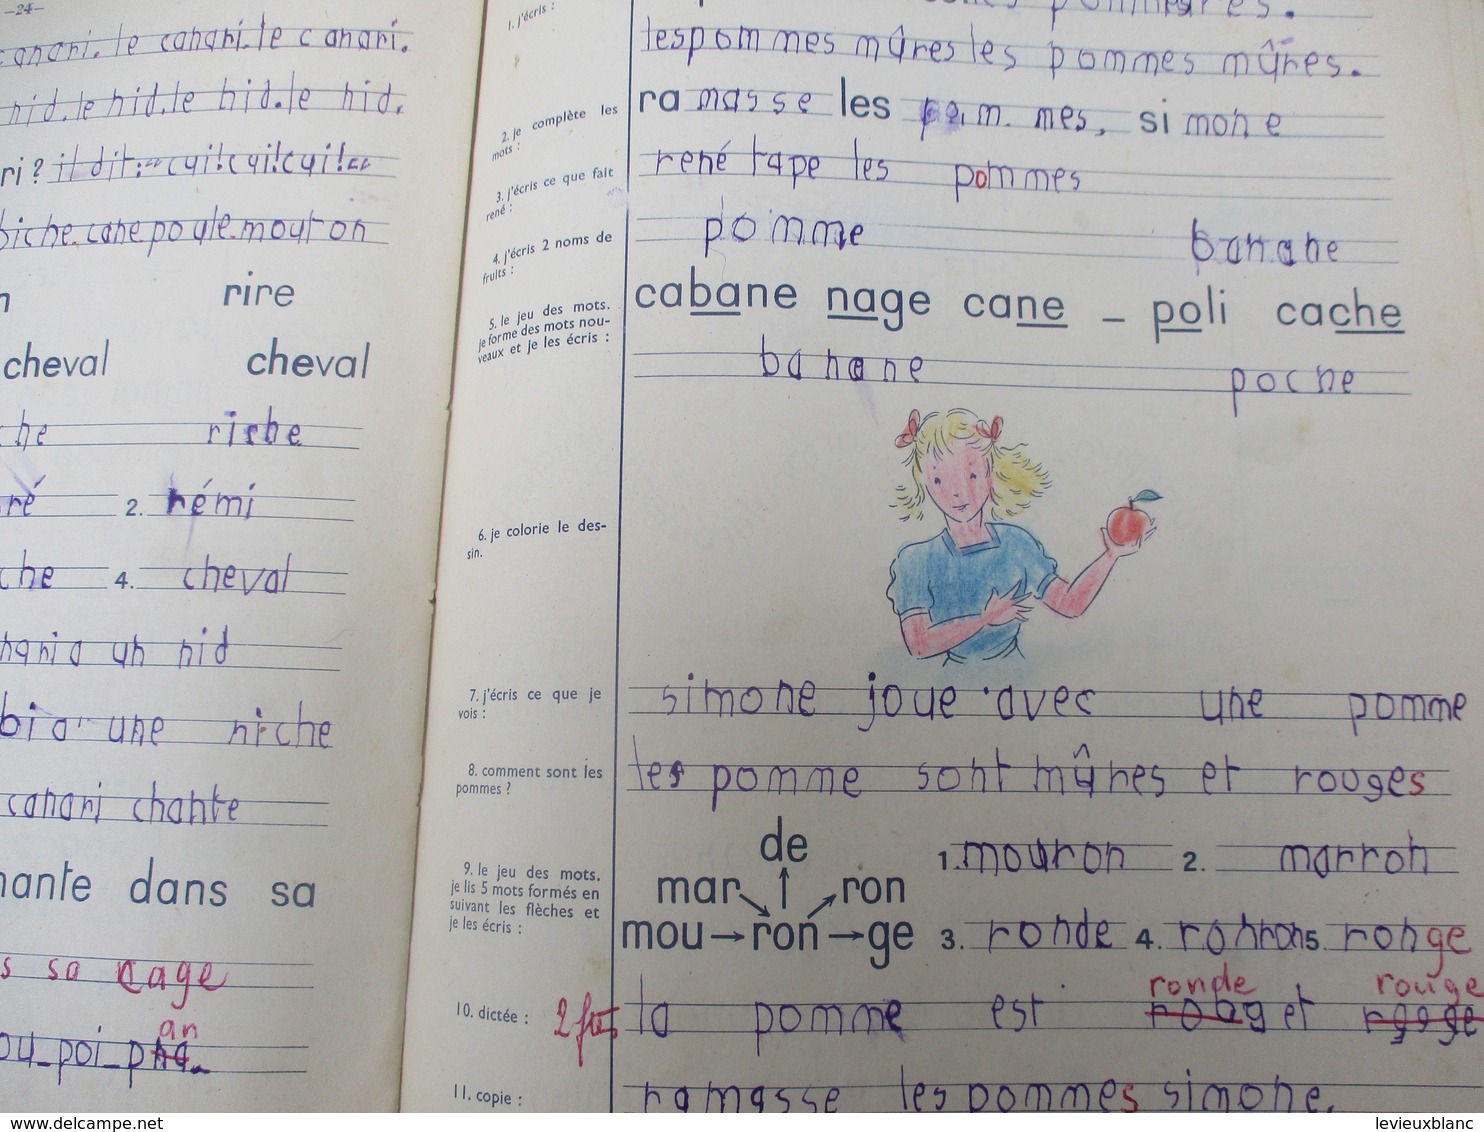 -24-
canari. le canari. le canari.
nid. le nid. le nid. le nid.
ri ? il dit : " cui! cui! cui! "
biche. cane poule. mouton
n rire
cheval cheval
che riche
ré 2. rémi
che 4. cheval
nani a un nid
bi a une niche
canari chante
hante dans sa
s sa cage
an
ou_poi_p
1. j'écris :
les pommes mûres les pommes mûres.
2. je complète les mots :
ramasse les pommes, simone
3. j'écris ce que fait rené :
rené tape les pommes
4. j'écris 2 noms de fruits :
pomme banane
5. le jeu des mots.
je forme des mots nou-
veaux et je les écris :
cabane nage cane _ poli cache
banane poche
6. je colorie le des-
sin.
7. j'écris ce que je vois :
simone joue avec une pomme
8. comment sont les pommes ?
les pomme sont mûres et rouges
9. le jeu des mots.
je lis 5 mots formés en
suivant les flèches et
je les écris :
de
mar ron
mou ron ge
1. mouron 2. marron
3. ronde 4. ronron 5. ronge
ronde rouge
10. dictée : 2 la pomme est et
11. copie :
ramasse les pommes simone.
www.delcampe.net
levieuxblanc